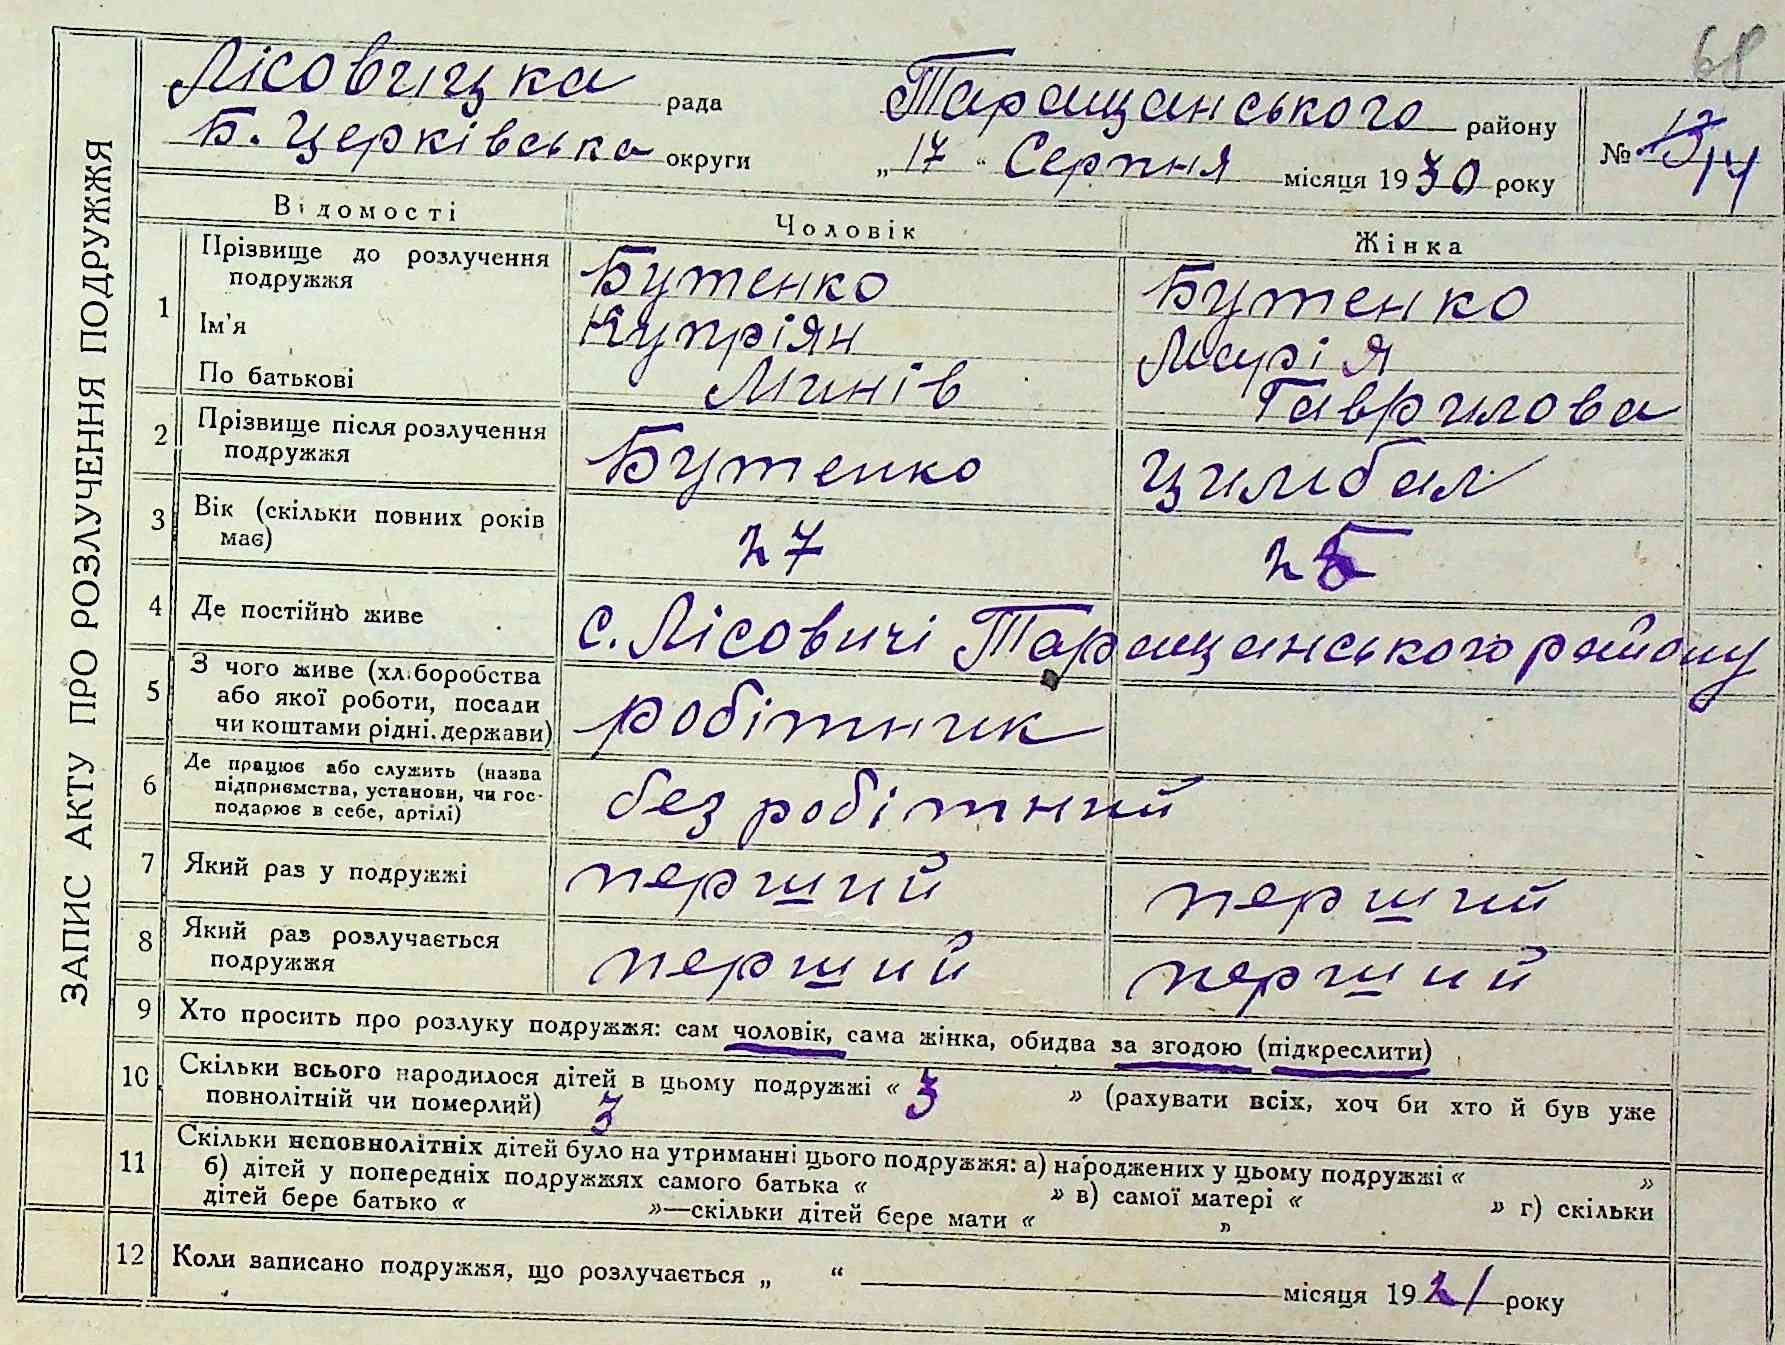 68
ЗАПИС АКТУ ПРО РОЗЛУЧЕННЯ ПОДРУЖЖЯ
Лісовицка рада Таращанського району
Б. Церківська округи „17“ Серпня місяця 1930 року
№ 14
Відомості Чоловік Жінка
1 Прізвище до розлучення подружжя Бутенко Бутенко
Ім'я Купріян Марія
По батькові Минів Гаврилова
2 Прізвище після розлучення подружжя Бутенко Цимбал
3 Вік (скільки повних років має) 27 25
4 Де постійно живе с. Лісовичі Таращанського району
5 З чого живе (хліборобства
або якої роботи, посади
чи коштами рідні, держави) робітник
6 Де працює або служить (назва
підприємства, установи, чи гос-
подарює в себе, артілі) без робітний
7 Який раз у подружжі перший перший
8 Який раз розлучається
подружжя перший перший
9 Хто просить про розлуку подружжя: сам чоловік, сама жінка, обидва за згодою (підкреслити)
10 Скільки всього народилося дітей в цьому подружжі « 3 » (рахувати всіх, хоч би хто й був уже
повнолітній чи померлий) 3
11 Скільки неповнолітніх дітей було на утриманні цього подружжя: а) народжених у цьому подружжі « »
б) дітей у попередніх подружжях самого батька « » в) самої матері « » г) скільки
дітей бере батько « »—скільки дітей бере мати « »
12 Коли записано подружжя, що розлучається „ “ місяця 1921 року